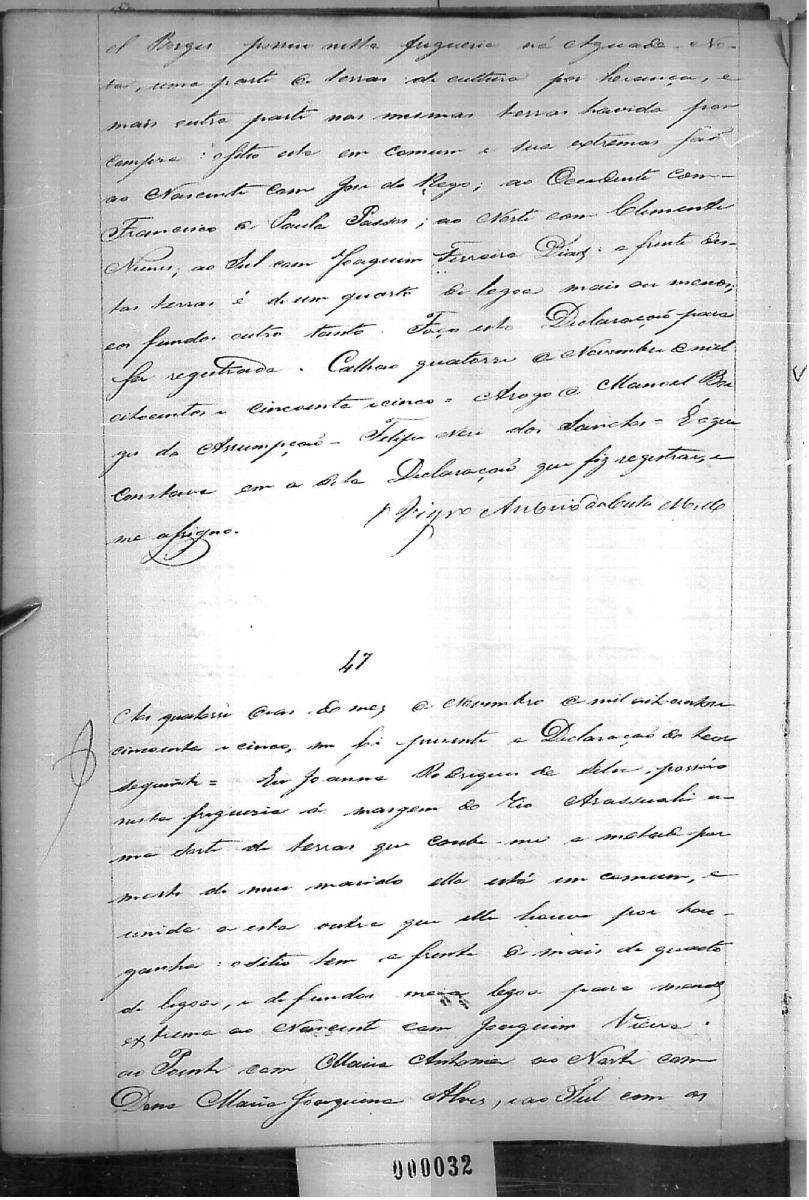 el Borges possue nesta freguesia na Aguada No-
va, uma parte de terras de cultura por herança, e
mais outra parte nas mesmas terras havida por
compra: o sitio esta em comum e sua extremas são
ao Nascente com José do Rego; ao Occidente com
Francisco de Paula Passos; ao Norte com Clemente
Nunes; ao Sul com Joaquim Ferreira Dias: a frente des-
tas terras é de um quarto de legoa mais ou menos,
eos fundos outro tanto. Faço esta Declaração para
ser registrada. Calhao quatorse de Novembro de mil
oitocentos e cincoenta e cinco = Arogo de Manoel Bor
ges da Assumpção = Felipe Neri dos Sanctos = E o que
constava em a dita Declaração que fiz registrar, e
me assigno.
O Vigro Antonio da Costa Mello
47
Aos quatorse dias do mez de Novembro de mil oitocentos e
cincoenta e cinco, me foi presente a Declaração do teor
seguinte = Eu Joanna Rodrigues da Silva possúo
nesta freguesia á margem do Rio Arassuahi u-
ma sorte de terras que coube-me a metade por
morte de meu marido ella está em comum, e
unida a esta outra que elle houve por bar-
ganha: o sitio tem a frente de mais de quarto
de legoa, e de fundos meia legoa para menos
extrema ao Nascente com Joaquim Vieira.
ao Poente com Maria Antonia ao Norte com
Dona Maria Joaquina Alves, e ao Sul com os
000032